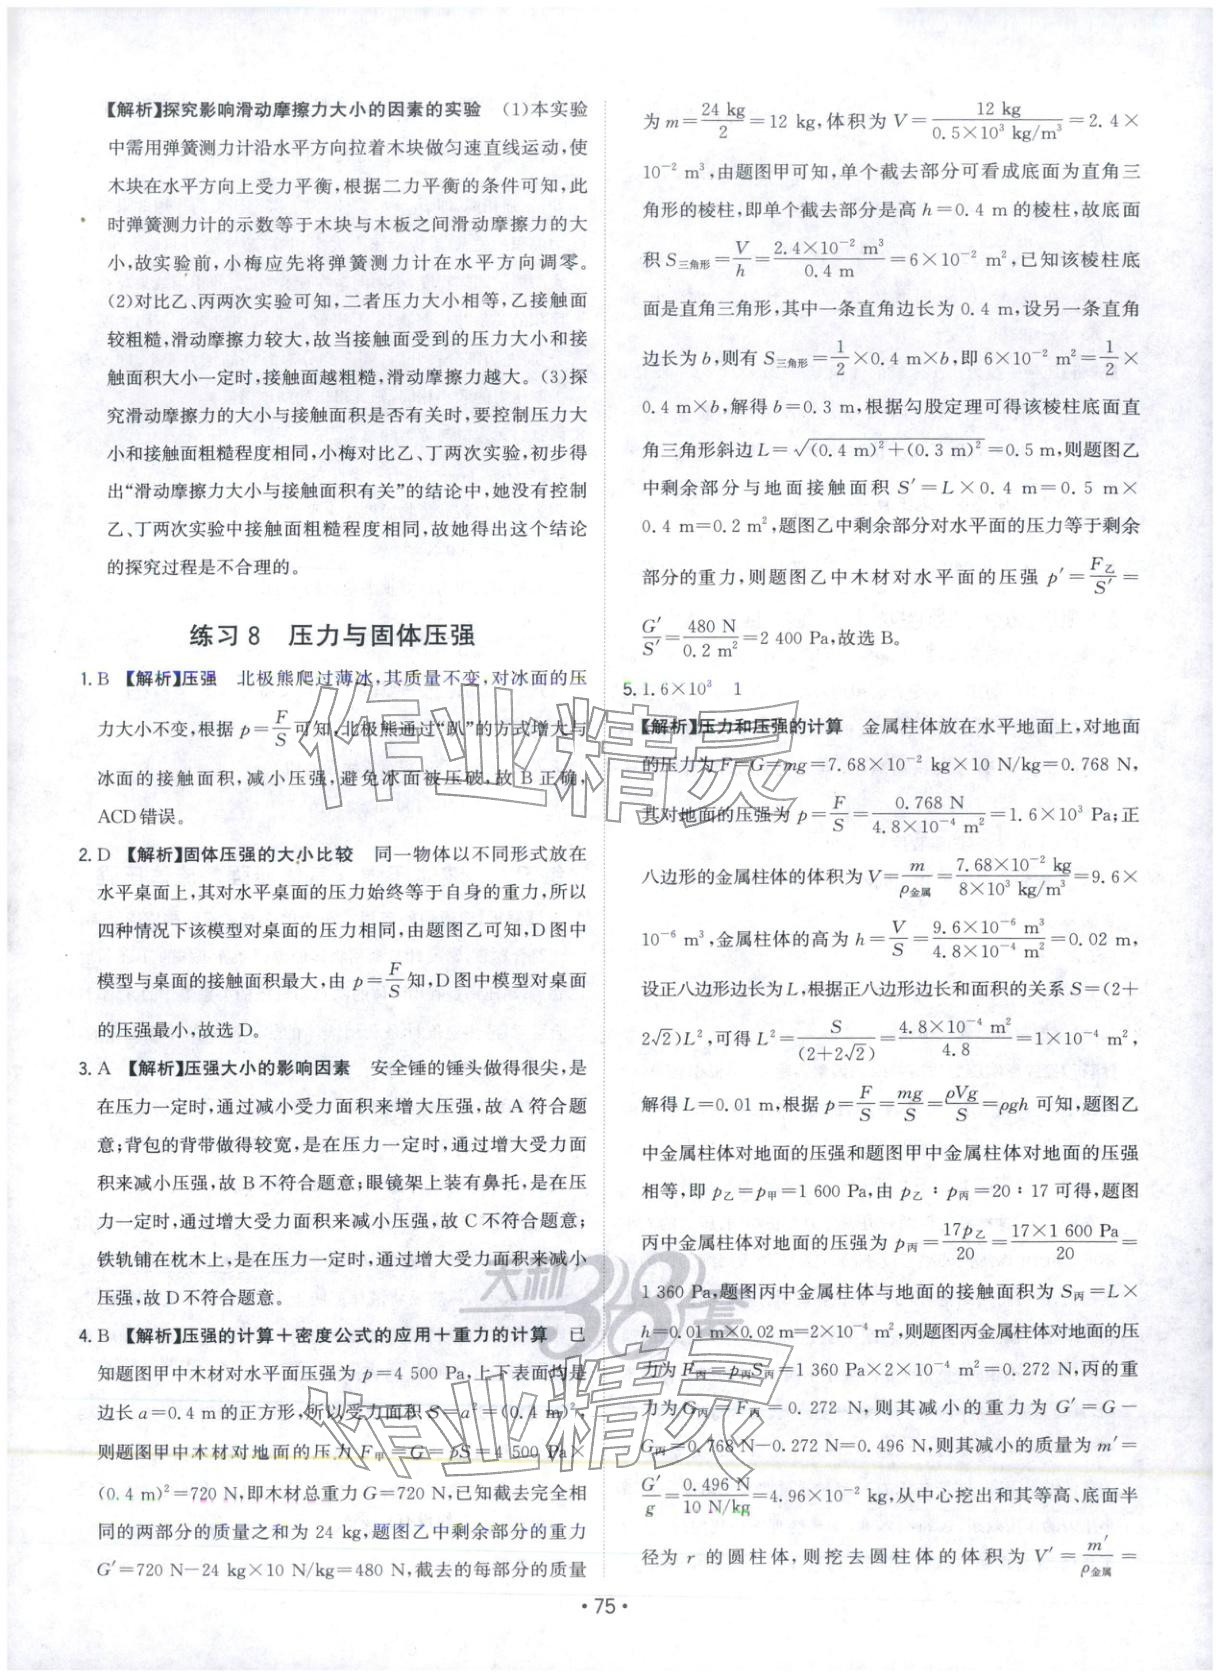 【解析】探究影响滑动摩擦力大小的因素的实验　(1)本实验
中需用弹簧测力计沿水平方向拉着木块做匀速直线运动,使
木块在水平方向上受力平衡,根据二力平衡的条件可知,此
时弹簧测力计的示数等于木块与木板之间滑动摩擦力的大
小,故实验前,小梅应先将弹簧测力计在水平方向调零。
(2)对比乙、丙两次实验可知,二者压力大小相等,乙接触面
较粗糙,滑动摩擦力较大,故当接触面受到的压力大小和接
触面积大小一定时,接触面越粗糙,滑动摩擦力越大。(3)探
究滑动摩擦力的大小与接触面积是否有关时,要控制压力大
小和接触面粗糙程度相同,小梅对比乙、丁两次实验,初步得
出“滑动摩擦力大小与接触面积有关”的结论中,她没有控制
乙、丁两次实验中接触面粗糙程度相同,故她得出这个结论
的探究过程是不合理的。
练习8　压力与固体压强
1. B　【解析】压强　北极熊爬过薄冰,其质量不变,对冰面的压
力大小不变,根据 p=F/S 可知,北极熊通过“趴”的方式增大与
冰面的接触面积,减小压强,避免冰面被压破,故 B 正确,
ACD错误。
2. D　【解析】固体压强的大小比较　同一物体以不同形式放在
水平桌面上,其对水平桌面的压力始终等于自身的重力,所以
四种情况下该模型对桌面的压力相同,由题图乙可知,D图中
模型与桌面的接触面积最大,由 p=F/S 知,D图中模型对桌面
的压强最小,故选D。
3. A　【解析】压强大小的影响因素　安全锤的锤头做得很尖,是
在压力一定时,通过减小受力面积来增大压强,故 A 符合题
意;背包的背带做得较宽,是在压力一定时,通过增大受力面
积来减小压强,故 B 不符合题意;眼镜架上装有鼻托,是在压
力一定时,通过增大受力面积来减小压强,故 C 不符合题意;
铁轨铺在枕木上,是在压力一定时,通过增大受力面积来减小
压强,故 D 不符合题意。
4. B　【解析】压强的计算+密度公式的应用+重力的计算　已
知题图甲中木材对水平面压强为 p=4 500 Pa,上下表面均是
边长 a=0.4 m的正方形,所以受力面积 S=a²=(0.4 m)²,
则题图甲中木材对地面的压力 F甲=G=pS=4 500 Pa×
(0.4 m)²=720 N,即木材总重力 G=720 N,已知截去完全相
同的两部分的质量之和为 24 kg,题图乙中剩余部分的重力
G′=720 N-24 kg×10 N/kg=480 N,截去的每部分的质量
为 m=24 kg/2=12 kg,体积为 V=12 kg/(0.5×10³ kg/m³)=2.4×
10⁻² m³,由题图甲可知,单个截去部分可看成底面为直角三
角形的棱柱,即单个截去部分是高 h=0.4 m 的棱柱,故底面
积 S三角形=V/h=(2.4×10⁻² m³)/(0.4 m)=6×10⁻² m²,已知该棱柱底
面是直角三角形,其中一条直角边长为 0.4 m,设另一条直角
边长为 b,则有 S三角形=1/2×0.4 m×b,即 6×10⁻² m²=1/2×
0.4 m×b,解得 b=0.3 m,根据勾股定理可得该棱柱底面直
角三角形斜边 L=√((0.4 m)²+(0.3 m)²)=0.5 m,则题图乙
中剩余部分与地面接触面积 S′=L×0.4 m=0.5 m×
0.4 m=0.2 m²,题图乙中剩余部分对水平面的压力等于剩余
部分的重力,则题图乙中木材对水平面的压强 p′=F乙/S′=
G′/S′=480 N/0.2 m²=2 400 Pa,故选 B。
5. 1.6×10³　1
【解析】压力和压强的计算　金属柱体放在水平地面上,对地面
的压力为 F=G=mg=7.68×10⁻² kg×10 N/kg=0.768 N,
其对地面的压强为 p=F/S=0.768 N/(4.8×10⁻⁴ m²)=1.6×10³ Pa;正
八边形的金属柱体的体积为 V=m/ρ金属=(7.68×10⁻² kg)/(8×10³ kg/m³)=9.6×
10⁻⁶ m³,金属柱体的高为 h=V/S=(9.6×10⁻⁶ m³)/(4.8×10⁻⁴ m²)=0.02 m,
设正八边形边长为 L,根据正八边形边长和面积的关系 S=(2+
2√2)L²,可得 L²=S/(2+2√2)=(4.8×10⁻⁴ m²)/4.8=1×10⁻⁴ m²,
解得 L=0.01 m,根据 p=F/S=mg/S=ρVg/S=ρgh 可知,题图乙
中金属柱体对地面的压强和题图甲中金属柱体对地面的压强
相等,即 p乙=p甲=1 600 Pa,由 p乙∶p丙=20∶17 可得,题图
丙中金属柱体对地面的压强为 p丙=17p乙/20=(17×1 600 Pa)/20=
1 360 Pa,题图丙中金属柱体与地面的接触面积为 S丙=L×
h=0.01 m×0.02 m=2×10⁻⁴ m²,则题图丙金属柱体对地面的压
力为 F丙=p丙S丙=1 360 Pa×2×10⁻⁴ m²=0.272 N,丙的重
力为 G丙=F丙=0.272 N,则其减小的重力为 G′=G-
G丙=0.768 N-0.272 N=0.496 N,则其减小的质量为 m′=
G′/g=0.496 N/(10 N/kg)=4.96×10⁻² kg,从中心挖出和其等高、底面半
径为 r 的圆柱体,则挖去圆柱体的体积为 V′=m′/ρ金属=
• 75 •
作业精灵
天利38套
作业精灵